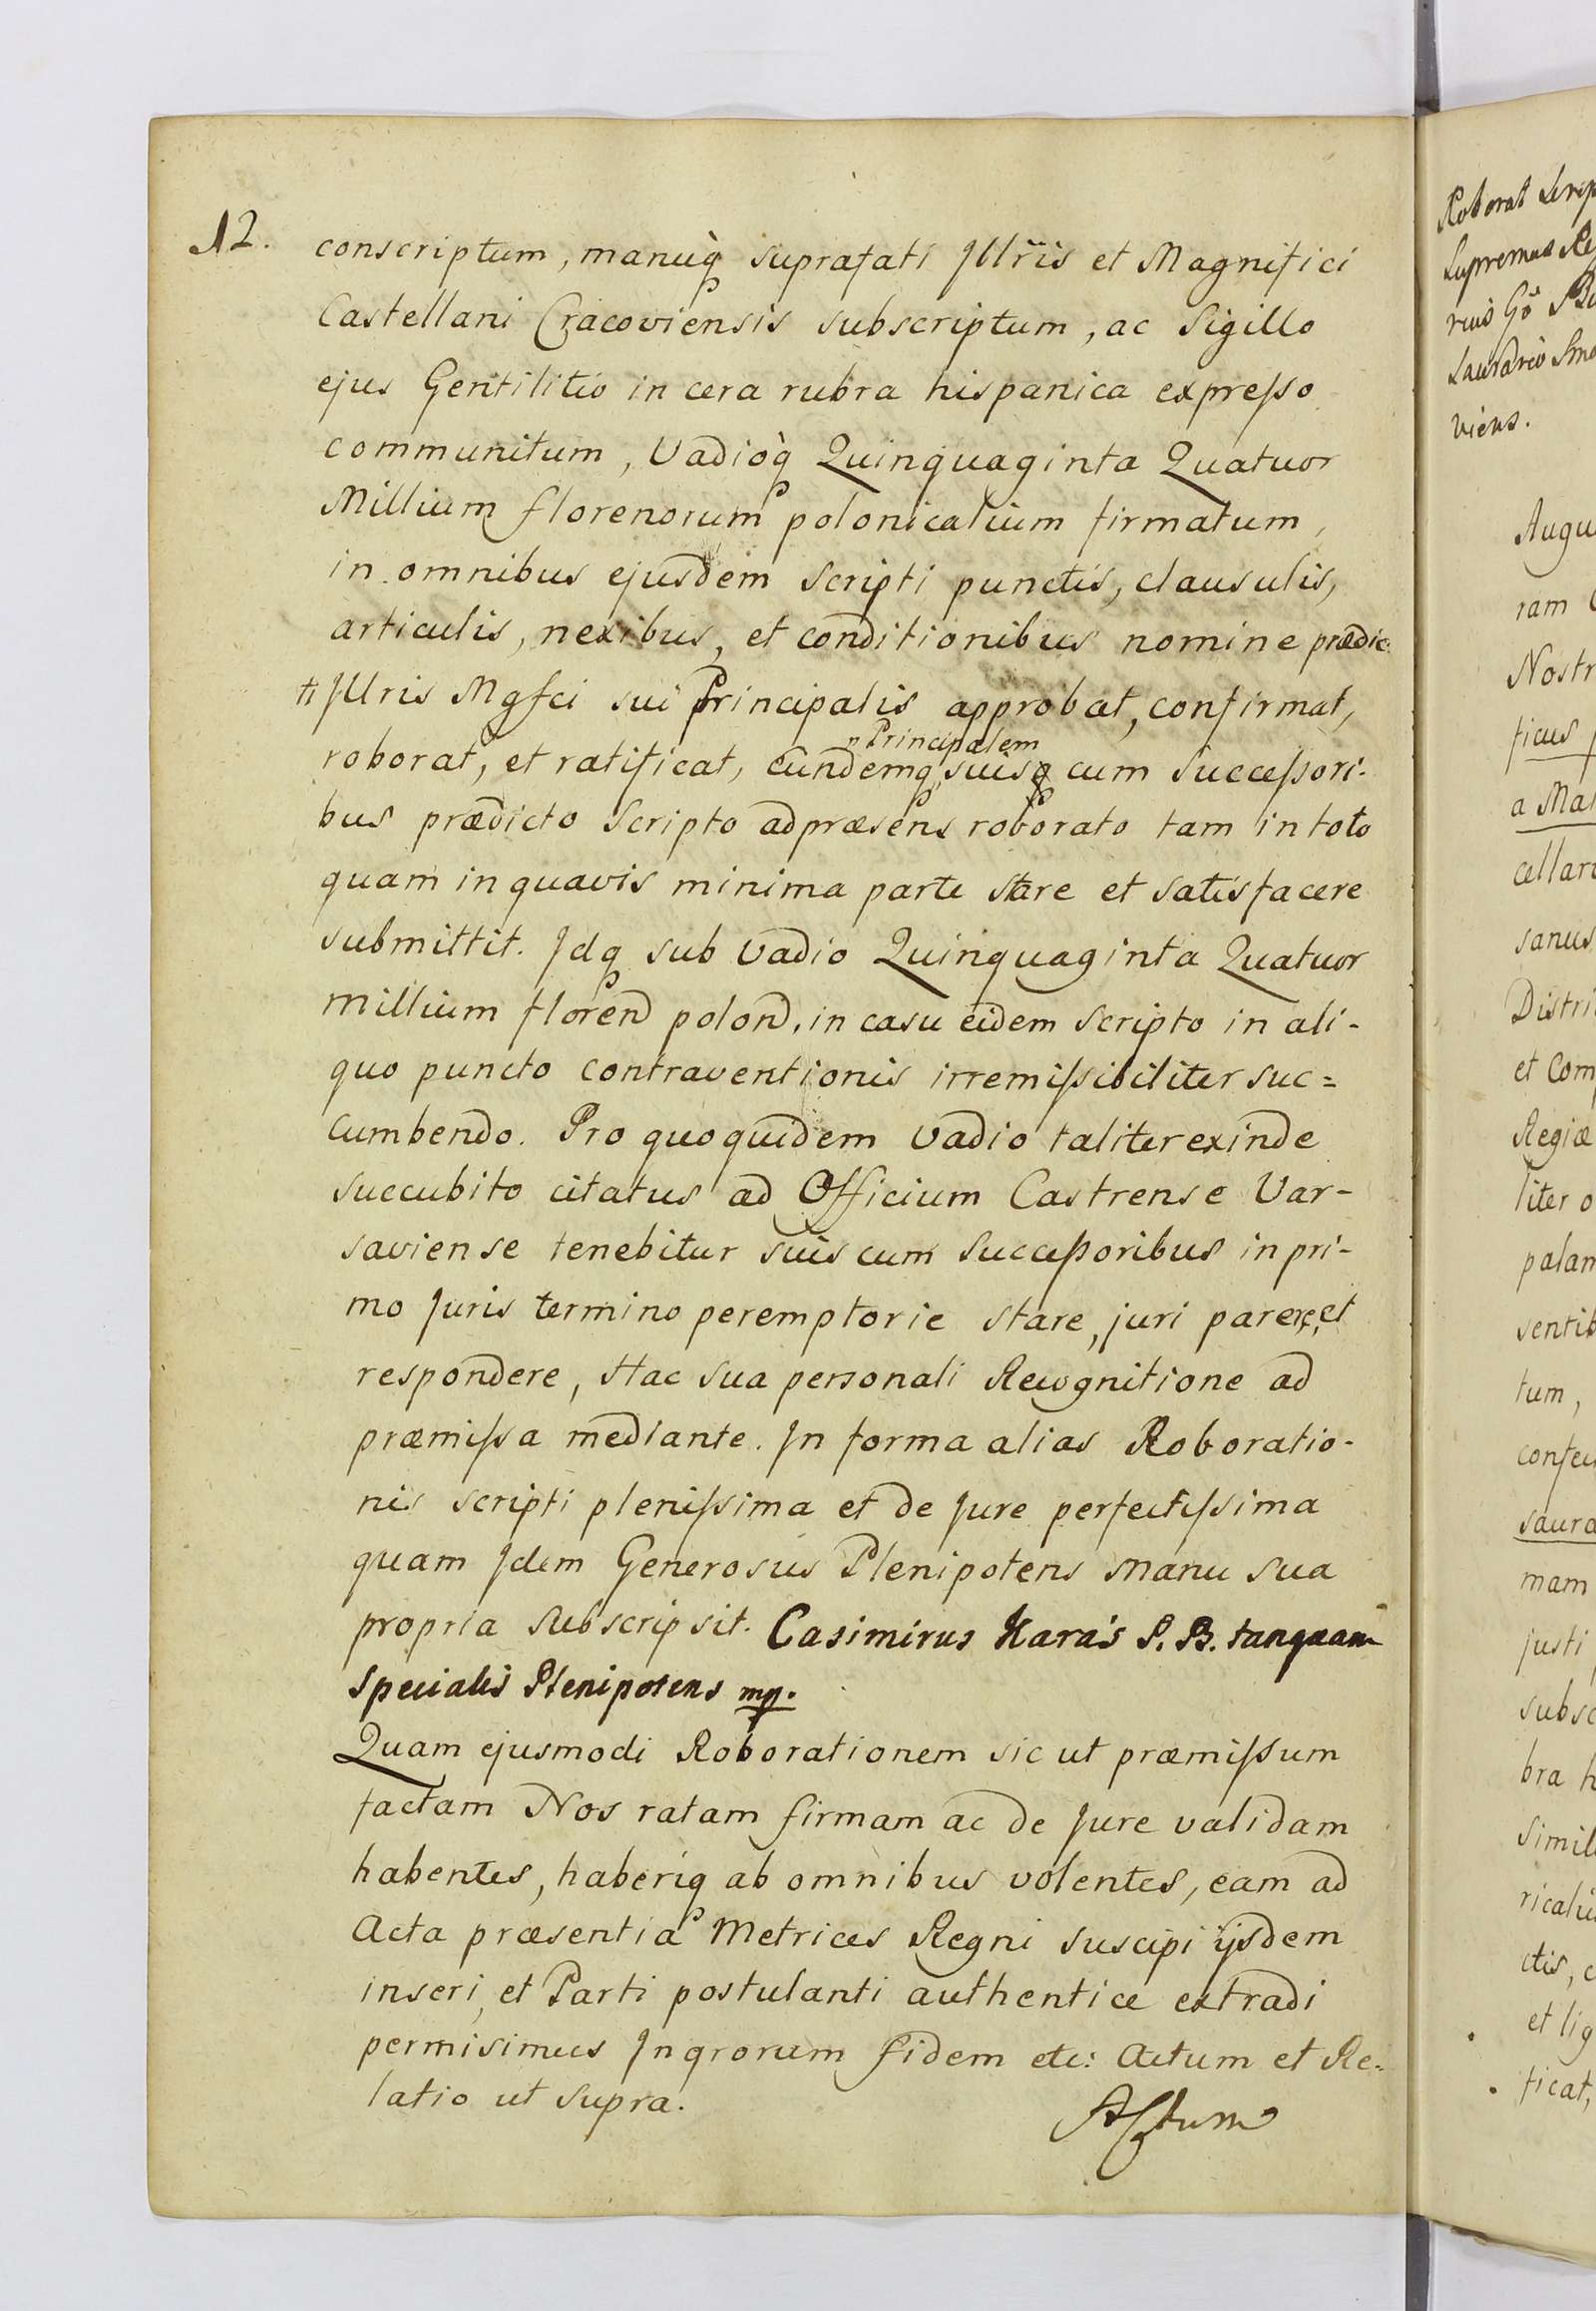 12.
conscriptum, manuq̀ suprafati Jllr̃is et Magnifici
Castellani Cracoviensis subscriptum, ac Sigillo
ejus Gentilitio in cera rubra hispanica expresso
communitum, Vadioq̀ Quinquaginta Quatuor
Millium florenorum polonicalium firmatum,
in omnibus ejusdem scripti punctis, clausulis,
articulis, nexibus, et conditionibus nomine prædic:
ti Jllris Mgfci sui Principalis approbat, confirmat,
Principalem
roborat, et ratificat, eundemq, suisq cum Successori-
bus prædicto Scripto ad præsens roborato tam in toto
quam in quavis minima parte stare et satisfacere
submittit. Jdq sub Vadio Quinquaginta Quatuor
millium floren polon, in casu eidem scripto in ali-
quo puncto contraventionis irremissibiliter suc=
cumbendo. Pro quo quidem Vadio taliter exinde
succubito citatus ad Officium Castrense Var-
saviense tenebitur suis cum Successoribus in pri-
mo Juris termino peremptorie stare, juri parere, et
respondere, Hac sua personali Recognitione ad
præmissa mediante. Jn forma alias Roboratio-
nis scripti plenissima et de Jure perfectissima
quam Jdem Generosus Plenipotens manu sua
propria subscripsit. Casimirus Karaś P. B. tanquam
specialis Plenipotens mp.
Quam ejusmodi Roborationem sic ut præmissum
factam Nos ratam firmam ac de Jure validam
habentes, haberiq ab omnibus volentes, eam ad
Acta præsentia Metrices Regni suscipi ijsdem
inseri, et Parti postulanti authentice extradi
permisimus Jnqrorum fidem etc: Actum et Re-
latio ut supra.
Actum
Roborat
Supremus Re
viens.
Augu
ram
Nostr
ficus
a Ma
cellari
sanus
Distri
et Com
Regiæ
liter o
palam
sentib
tum,
saura
mam
justi
subsc
bra h
simil
ctis, c
et lig
ficat,